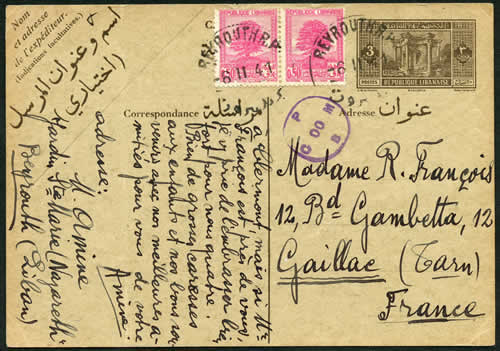 Nom
et adresse
de l'expéditeur.
(Indications facultatives.)
اسم وعنوان المرسل
(اختياري)
adresse:
M. Amine
Jardin Ste Marie (Nazareth)
Beyrouth (Liban)
Correspondance
مراسلة
à Clermont, mais si Mr
François est près de vous,
je vous prie de l'embrasser bien
fort pour nous quatre.
Bien de grosses caresses
aux enfants et nos bons sou-
venirs avec nos meilleures a-
mitiés pour vous de votre
Amine
REPUBLIQUE LIBANAISE
REPUBLIQUE LIBANAISE
BEYROUTH R.P.
6 II 41
BEYROUTH R.P.
6 II
3
POSTES
REPUBLIQUE LIBANAISE
P
COOM
عنوان
Adresse
Madame R. François
12, Bd Gambetta, 12
Gaillac (Tarn)
France